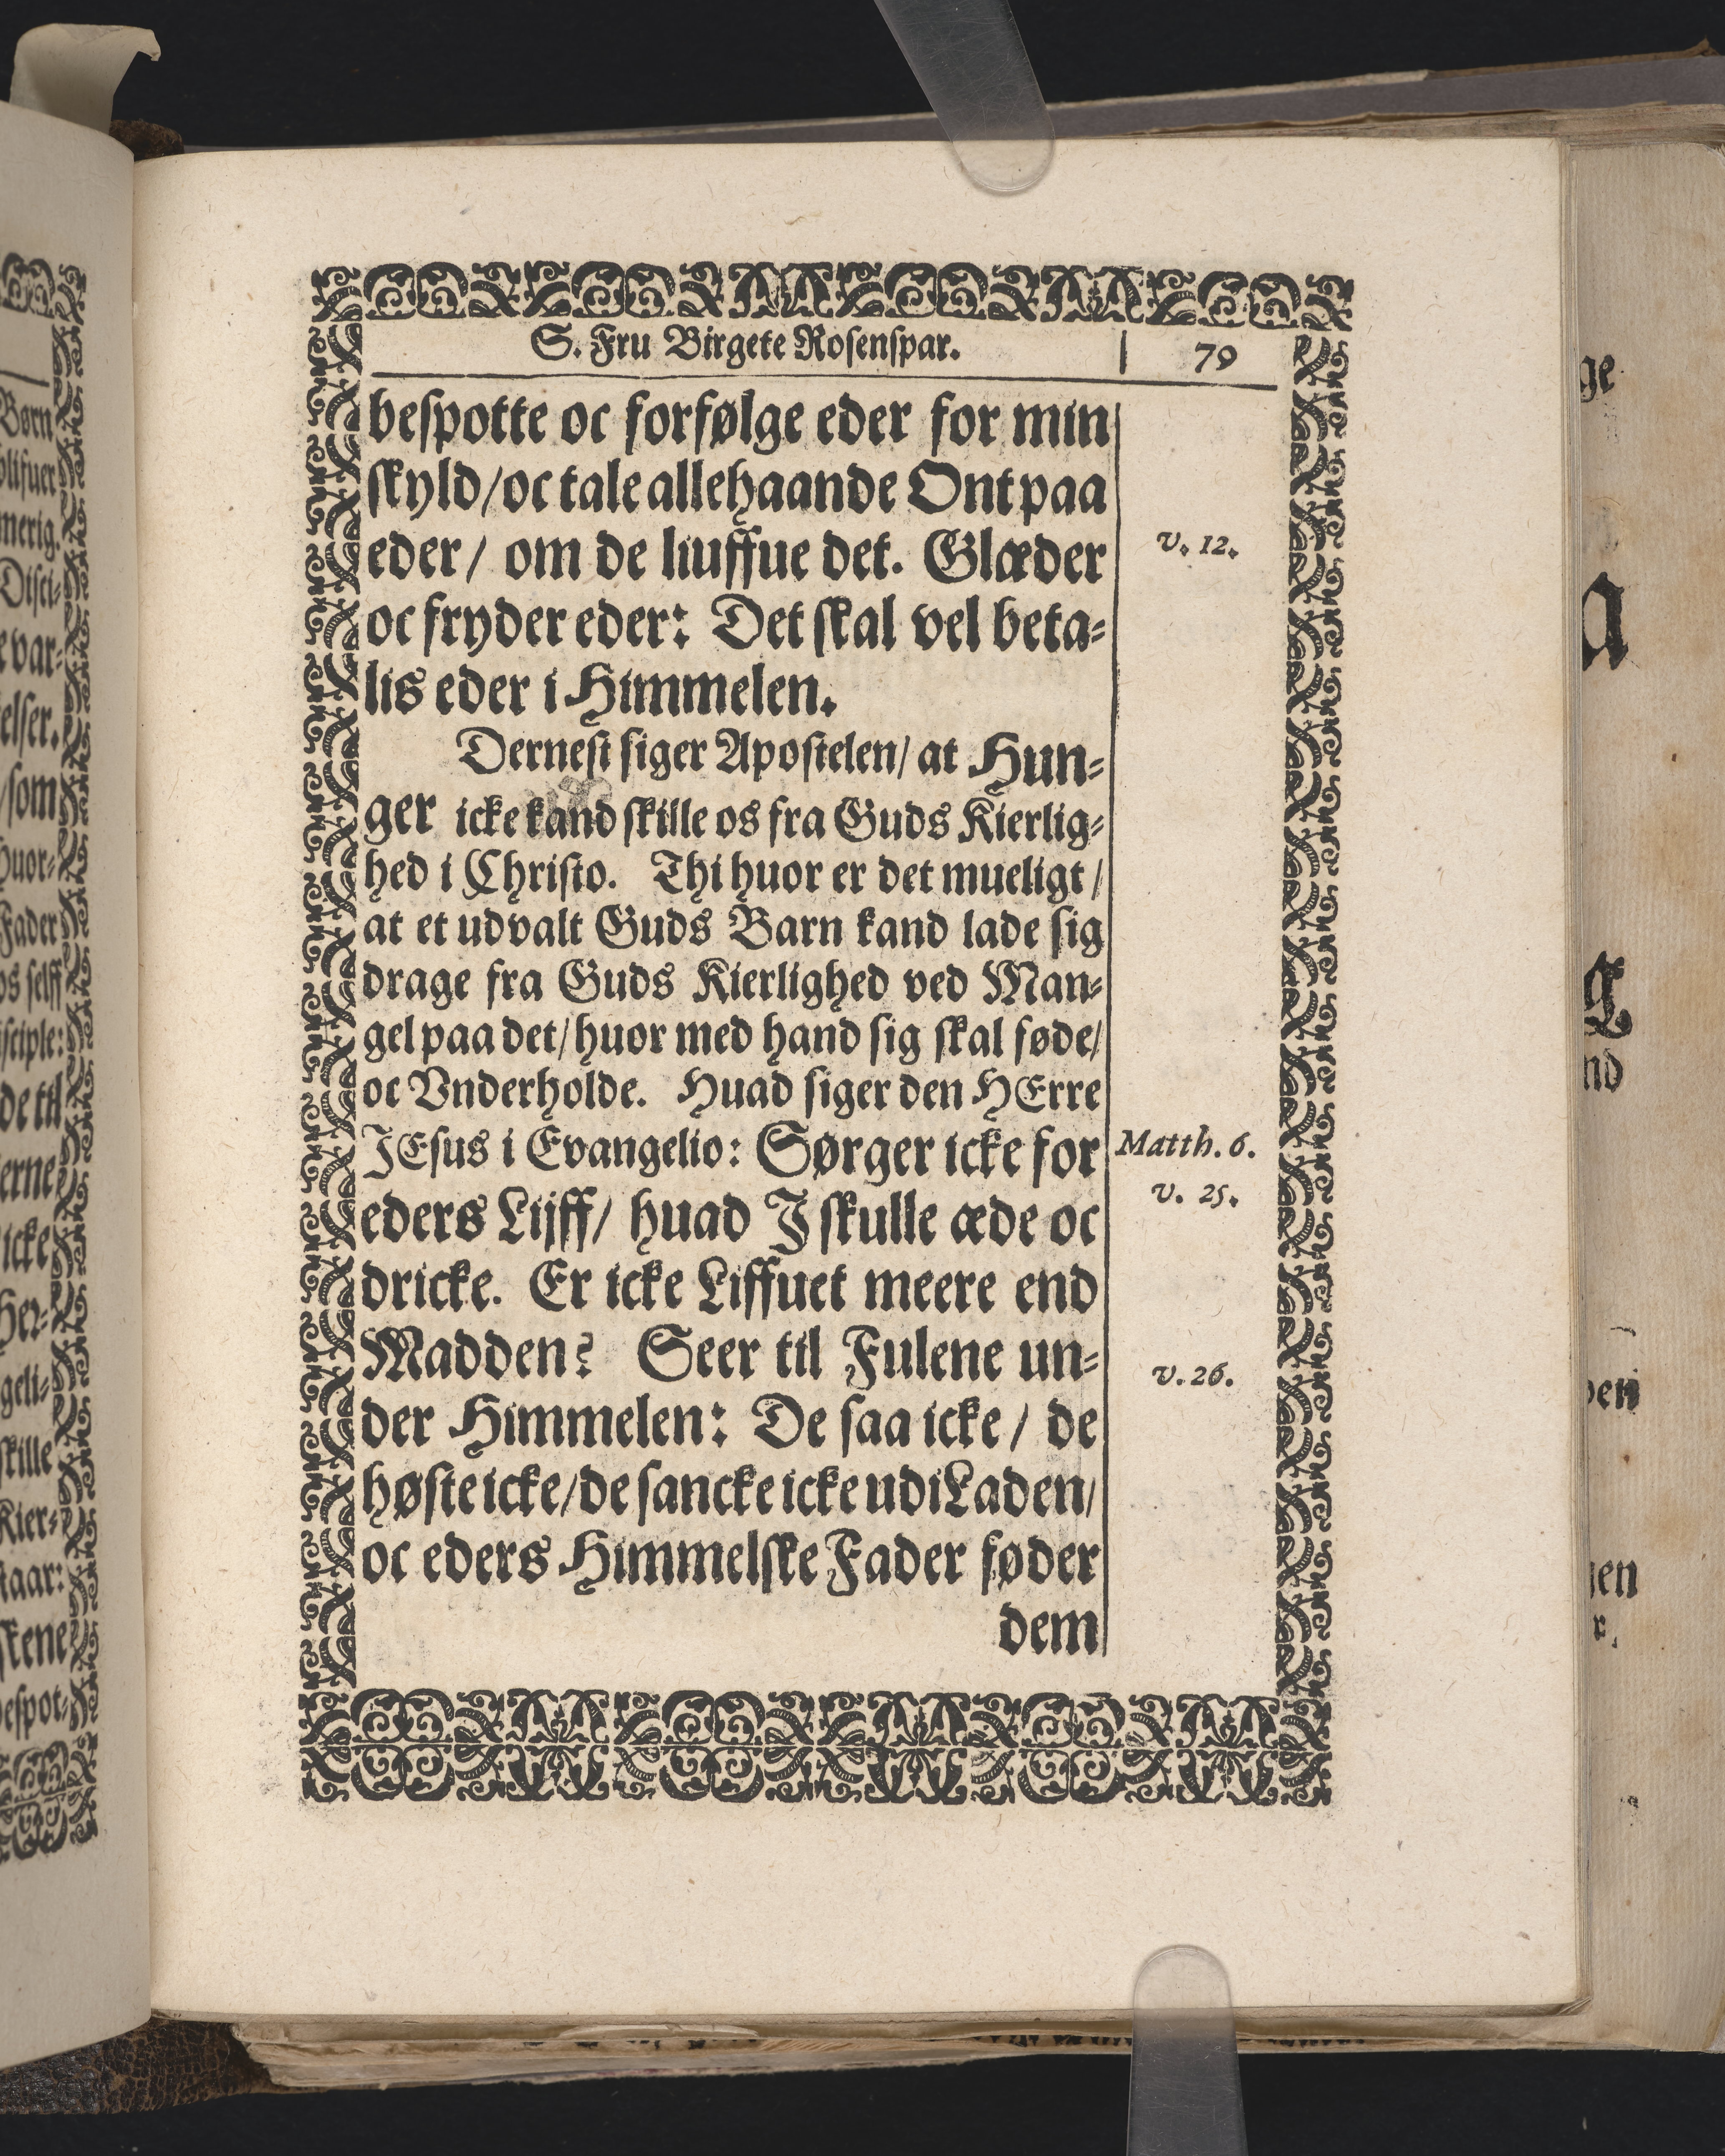 S. Fru Birgete Rosenspar.
79
bespotte oc forfølge eder for min
skyld/oc tale allehaande Ont paa
eder/ om de liuffue det. Glæder
v. 12.
oc fryder eder: Det skal vel beta-
lis eder i Himmelen.
Dernest siger Apostelen/ at Hun-
ger icke kand skille os fra Guds Kierlig-
hed i Christo. Thi huor er det mueligt/
at et udvalt Guds Barn kand lade sig
drage fra Guds Kierlighed ved Man-
gel paa det/ huor med hand sig skal føde/
oc Vnderholde. Huad siger den HErre
JEsus i Evangelio: Sørger icke for
Matth. 6.
v. 25.
eders Lijff/ huad J skulle æde oc
dricke. Er icke Liffuet meere end
Madden? Seer til Fulene un-
v. 26.
der Himmelen: De saa icke / de
høste icke/de sancke icke udi Laden/
oc eders Himmelske Fader føder
dem